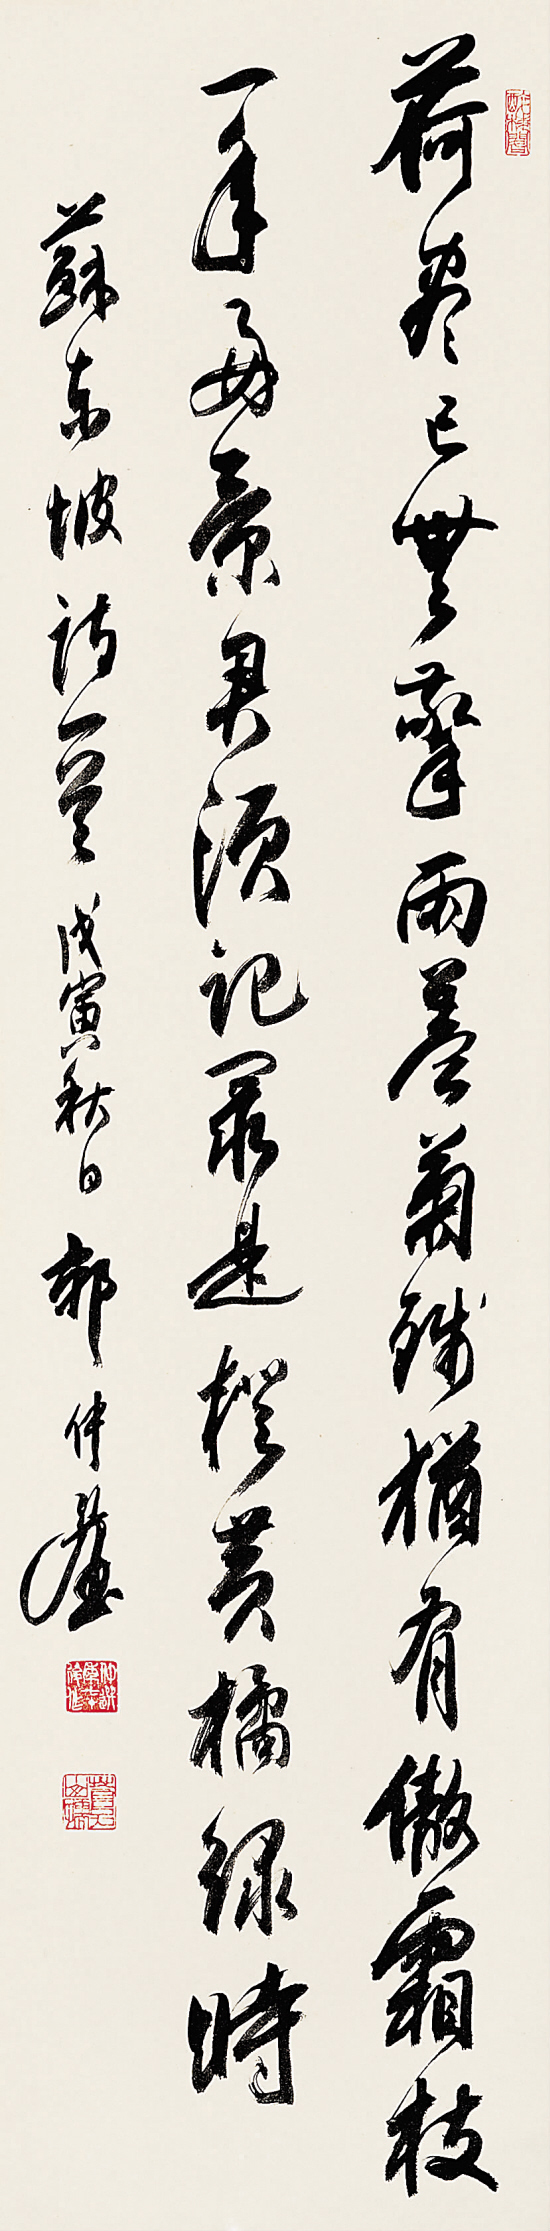 荷尽已無擎雨蓋菊残猶有傲霜枝
一年好景君須記最是橙黄橘緑時
蘇東坡詩一首 戊寅秋日 郭仲選